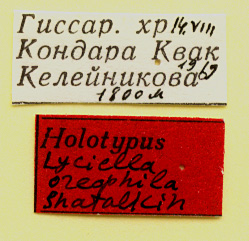 Гиссар. хр 14.VIII
Кондара Квак
Келейникова 1969
1800 м
Holotypus
Lyciella
oreophila
Shatalkin